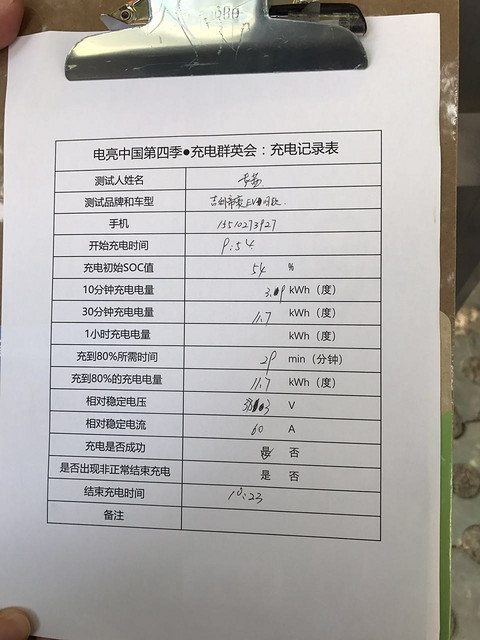 电亮中国第四季●充电群英会：充电记录表
测试人姓名
测试品牌和车型
手机 15510273927
开始充电时间 9:54
充电初始SOC值 54 %
10分钟充电电量 kWh（度）
30分钟充电电量 11.7 kWh（度）
1小时充电电量 kWh（度）
充到80%所需时间 29 min（分钟）
充到80%的充电电量 11.7 kWh（度）
相对稳定电压 V
相对稳定电流 60 A
充电是否成功 是 否
是否出现非正常结束充电 是 否
结束充电时间 10:23
备注